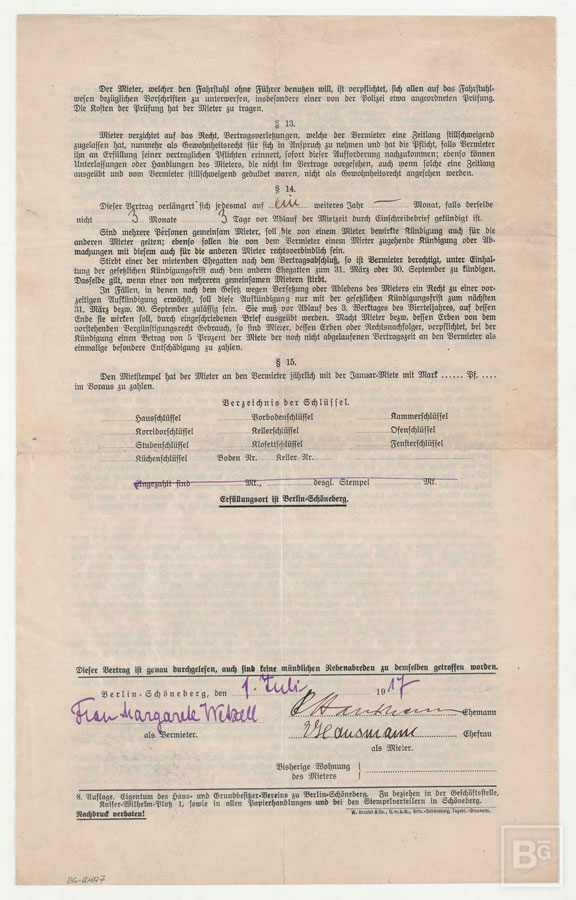 Der Mieter, welcher den Fahrstuhl ohne Führer benutzen will, ist verpflichtet, sich allen auf das Fahrstuhl-
wesen bezüglichen Vorschriften zu unterwerfen, insbesondere einer von der Polizei etwa angeordneten Prüfung.
Die Kosten der Prüfung hat der Mieter zu tragen.
§ 13.
Mieter verzichtet auf das Recht, Vertragsverletzungen, welche der Vermieter eine Zeitlang stillschweigend
zugelassen hat, nunmehr als Gewohnheitsrecht für sich in Anspruch zu nehmen und hat die Pflicht, falls Vermieter
ihn an Erfüllung seiner vertraglichen Pflichten erinnert, sofort dieser Aufforderung nachzukommen; ebenso können
Unterlassungen oder Handlungen des Mieters, die nicht im Vertrage vorgesehen, auch wenn solche eine Zeitlang
ausgeübt und vom Vermieter stillschweigend geduldet waren, nicht als Gewohnheitsrecht angesehen werden.
§ 14.
Dieser Vertrag verlängert sich jedesmal auf ein weiteres Jahr — Monat, falls derselbe
nicht 3 Monate 3 Tage vor Ablauf der Mietzeit durch Einschreibebrief gekündigt ist.
Sind mehrere Personen gemeinsam Mieter, soll die von einem Mieter bewirkte Kündigung auch für die
anderen Mieter gelten; ebenso sollen die von dem Vermieter einem Mieter zugehende Kündigung oder Ab-
machungen mit diesem auch für die anderen Mieter rechtsverbindlich sein.
Stirbt einer der mietenden Ehegatten nach dem Vertragsabschluß, so ist Vermieter berechtigt, unter Einhal-
tung der gesetzlichen Kündigungsfrist auch dem andern Ehegatten zum 31. März oder 30. September zu kündigen.
Dasselbe gilt, wenn einer von mehreren gemeinsamen Mietern stirbt.
In Fällen, in denen nach dem Gesetz wegen Versetzung oder Ablebens des Mieters ein Recht zu einer vor-
zeitigen Aufkündigung erwächst, soll diese Aufkündigung nur mit der gesetzlichen Kündigungsfrist zum nächsten
31. März bezw. 30. September zulässig sein. Sie muß vor Ablauf des 3. Werktages des Vierteljahres, auf dessen
Ende sie wirken soll, durch eingeschriebenen Brief ausgeübt werden. Macht Mieter bezw. dessen Erben von dem
vorstehenden Vergünstigungsrecht Gebrauch, so sind Mieter, dessen Erben oder Rechtsnachfolger, verpflichtet, bei der
Kündigung einen Betrag von 5 Prozent der Miete der noch nicht abgelaufenen Vertragszeit an den Vermieter als
einmalige besondere Entschädigung zu zahlen.
§ 15.
Den Mietstempel hat der Mieter an den Vermieter jährlich mit der Januar-Miete mit Mark ...... Pf. ....
im Voraus zu zahlen.
Verzeichnis der Schlüssel.
Hausschlüssel Vorbodenschlüssel Kammerschlüssel
Korridorschlüssel Kellerschlüssel Ofenschlüssel
Stubenschlüssel Klosettschlüssel Fensterschlüssel
Küchenschlüssel Boden Nr. Keller Nr.
Eingezahlt sind Mk., desgl. Stempel Mk.
Erfüllungsort ist Berlin-Schöneberg.
Dieser Vertrag ist genau durchgelesen, auch sind keine mündlichen Nebenabreden zu demselben getroffen worden.
Berlin-Schöneberg, den 1. Juli 1917
Frau Margarete Wetzell Hausmann Ehemann
als Vermieter. Hausmann Ehefrau
als Mieter.
Bisherige Wohnung
des Mieters
8. Auflage. Eigentum des Haus- und Grundbesitzer-Vereins zu Berlin-Schöneberg. Zu beziehen in der Geschäftsstelle,
Kaiser-Wilhelm-Platz 1, sowie in allen Papierhandlungen und bei den Stempelverteilern in Schöneberg.
Nachdruck verboten!
BG